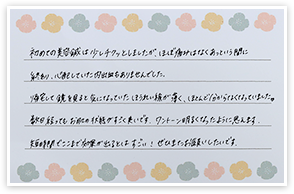 初めての美容鍼は少しチクッとしましたが、ほぼ痛みはなくあっという間に
終わり、心配していた内出血もありませんでした。
帰宅して鏡を見ると気になっていたほうれい線が薄く、ほとんど分からなくなっていました。
数日経ってもお肌の状態がすごく良いです。ワントーン明るくなったように思えます。
短時間でここまで効果が出るとはすごい！ぜひまたお願いしたいです。